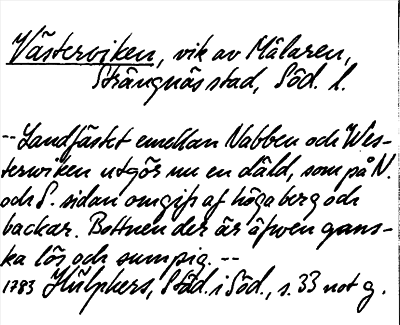 Västerviken, vik av Mälaren,
Strängnäs stad, Söd. l.
-- Landfästet emellan Nabben och Wes-
terwiken utgör nu en däld, som på N.
och S. sidan omgifs af höga berg och
backar. Bottnen der är äfwen gans-
ka lös och sumpig. --
1783 Hülphers, Städ. i Söd., s. 33 not g.